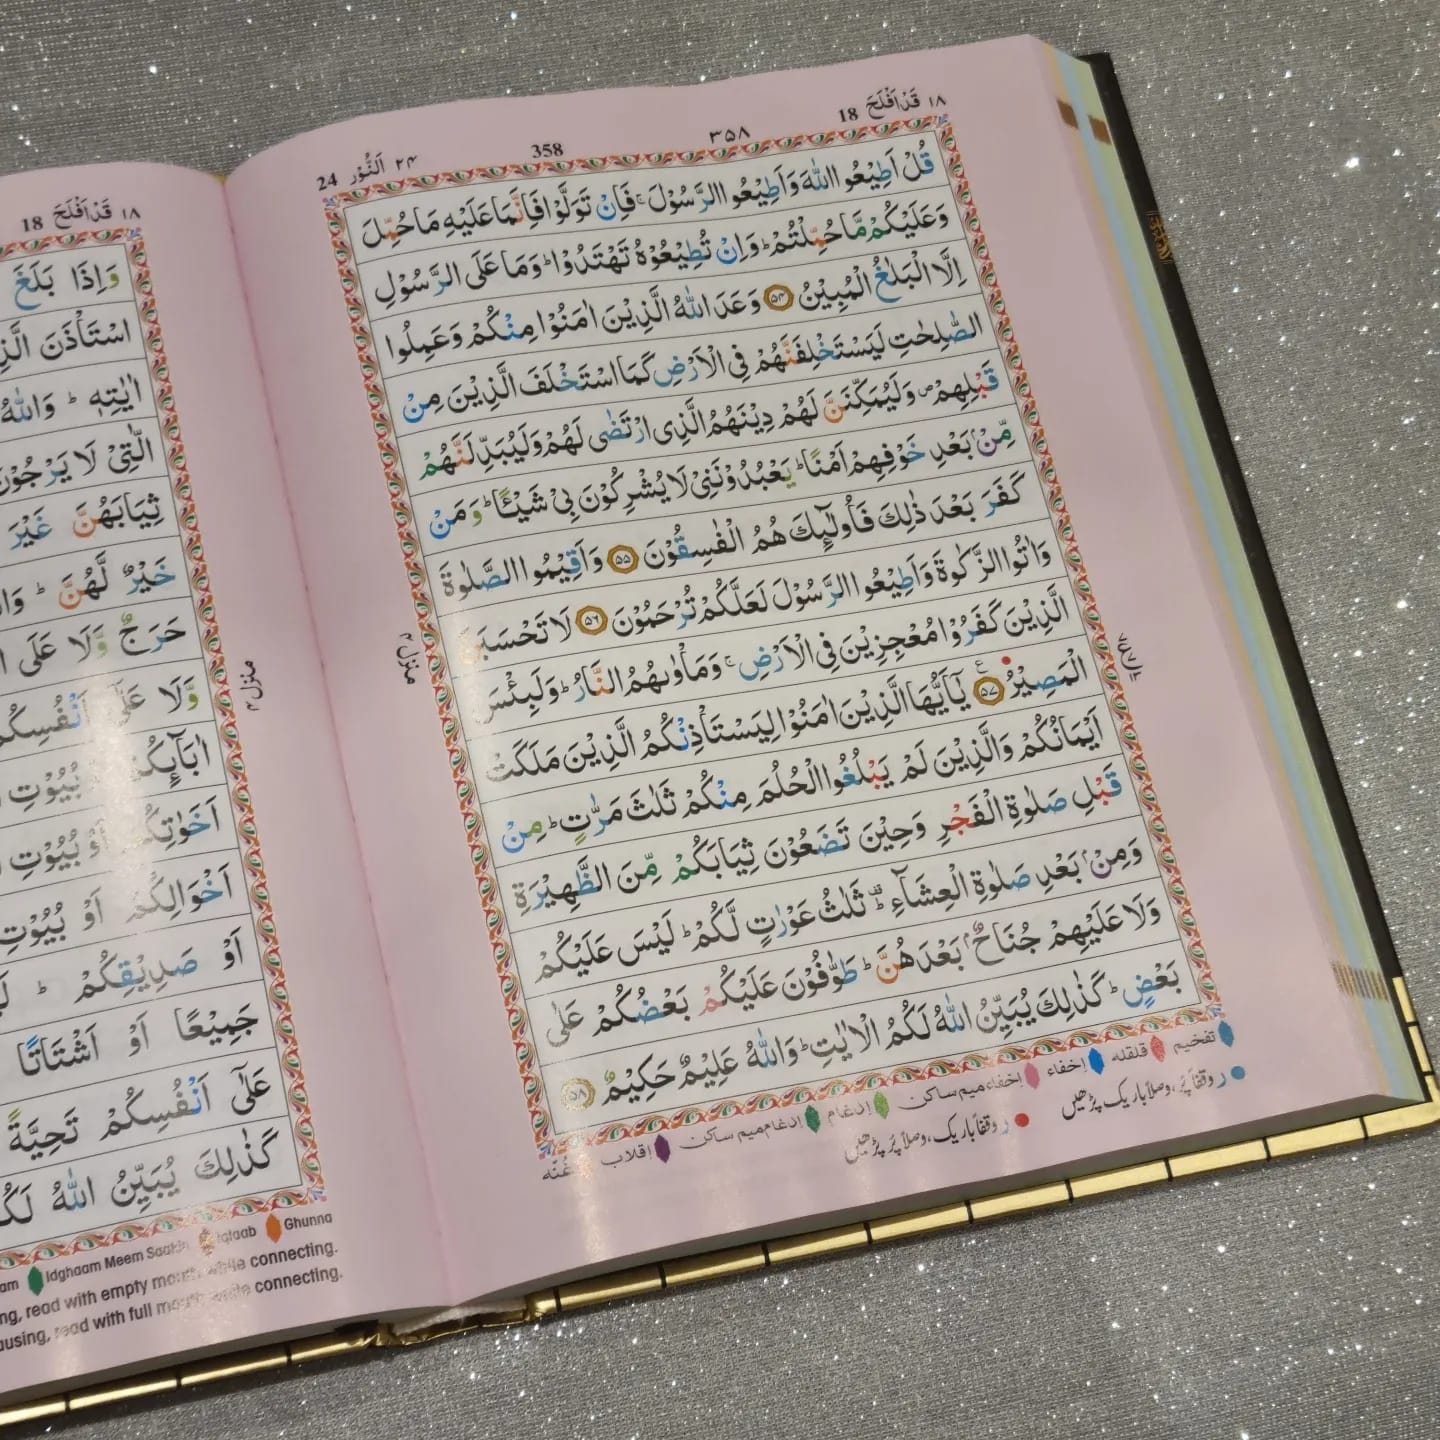 ١٨ قَدْ اَفْلَحَ 18
٣٥٨
358
٢٤ اَلنُّوْر 24
قُلْ اَطِيْعُوا اللّٰهَ وَاَطِيْعُوا الرَّسُوْلَ ۚ فَاِنْ تَوَلَّوْا فَاِنَّمَا عَلَيْهِ مَا حُمِّلَ
وَعَلَيْكُمْ مَّا حُمِّلْتُمْ ؕ وَاِنْ تُطِيْعُوْهُ تَهْتَدُوْا ؕ وَمَا عَلَى الرَّسُوْلِ
اِلَّا الْبَلٰغُ الْمُبِيْنُ ﴿۵۴﴾ وَعَدَ اللّٰهُ الَّذِيْنَ اٰمَنُوْا مِنْكُمْ وَعَمِلُوا
الصّٰلِحٰتِ لَيَسْتَخْلِفَنَّهُمْ فِى الْاَرْضِ كَمَا اسْتَخْلَفَ الَّذِيْنَ مِنْ
قَبْلِهِمْ ۪ وَلَيُمَكِّنَنَّ لَهُمْ دِيْنَهُمُ الَّذِى ارْتَضٰى لَهُمْ وَلَيُبَدِّلَنَّهُمْ
مِّنْۢ بَعْدِ خَوْفِهِمْ اَمْنًا ؕ يَعْبُدُوْنَنِىْ لَا يُشْرِكُوْنَ بِىْ شَيْـًٔا ؕ وَمَنْ
كَفَرَ بَعْدَ ذٰلِكَ فَاُولٰٓئِكَ هُمُ الْفٰسِقُوْنَ ﴿۵۵﴾ وَاَقِيْمُوا الصَّلٰوةَ
وَاٰتُوا الزَّكٰوةَ وَاَطِيْعُوا الرَّسُوْلَ لَعَلَّكُمْ تُرْحَمُوْنَ ﴿۵۶﴾ لَا تَحْسَبَنَّ
الَّذِيْنَ كَفَرُوْا مُعْجِزِيْنَ فِى الْاَرْضِ ۚ وَمَاْوٰىهُمُ النَّارُ ؕ وَلَبِئْسَ
الْمَصِيْرُ ﴿۵۷﴾ يٰۤاَيُّهَا الَّذِيْنَ اٰمَنُوْا لِيَسْتَاْذِنْكُمُ الَّذِيْنَ مَلَكَتْ
اَيْمَانُكُمْ وَالَّذِيْنَ لَمْ يَبْلُغُوا الْحُلُمَ مِنْكُمْ ثَلٰثَ مَرّٰتٍ ؕ مِنْ
قَبْلِ صَلٰوةِ الْفَجْرِ وَحِيْنَ تَضَعُوْنَ ثِيَابَكُمْ مِّنَ الظَّهِيْرَةِ
وَمِنْۢ بَعْدِ صَلٰوةِ الْعِشَآءِ ؕ ثَلٰثُ عَوْرٰتٍ لَّكُمْ ؕ لَيْسَ عَلَيْكُمْ
وَلَا عَلَيْهِمْ جُنَاحٌۢ بَعْدَهُنَّ ؕ طَوّٰفُوْنَ عَلَيْكُمْ بَعْضُكُمْ عَلٰى
بَعْضٍ ؕ كَذٰلِكَ يُبَيِّنُ اللّٰهُ لَكُمُ الْاٰيٰتِ ؕ وَاللّٰهُ عَلِيْمٌ حَكِيْمٌ ﴿۵۸﴾
منزل ۴
تفخیم قلقله إخفاء إخفاء میم ساکن إدغام إدغام میم ساکن إقلاب غُنّه
ر وقفاً پُر، وصلاً باریک پڑھیں ر وقفاً باریک، وصلاً پُر پڑھیں
١٨ قَدْ اَفْلَحَ 18
وَاِذَا بَلَغَ
اسْتَاْذَنَ
اٰيٰتِهٖ ؕ وَاللّٰهُ
الّٰتِىْ لَا يَرْجُوْنَ
ثِيَابَهُنَّ غَيْرَ
خَيْرٌ لَّهُنَّ ؕ
حَرَجٌ وَّلَا عَلَى
وَّلَا عَلٰٓى اَنْفُسِكُمْ
اٰبَآئِكُمْ بُيُوْتِ
اَخَوٰتِكُمْ اَوْ بُيُوْتِ
اَخْوَالِكُمْ اَوْ بُيُوْتِ
اَوْ صَدِيْقِكُمْ ؕ
جَمِيْعًا اَوْ اَشْتَاتًا
عَلٰٓى اَنْفُسِكُمْ تَحِيَّةً
كَذٰلِكَ يُبَيِّنُ اللّٰهُ
منزل ۴
Idghaam Meem Saakin Iqlaab Ghunna
read with empty mouth while connecting.
read with full mouth while connecting.